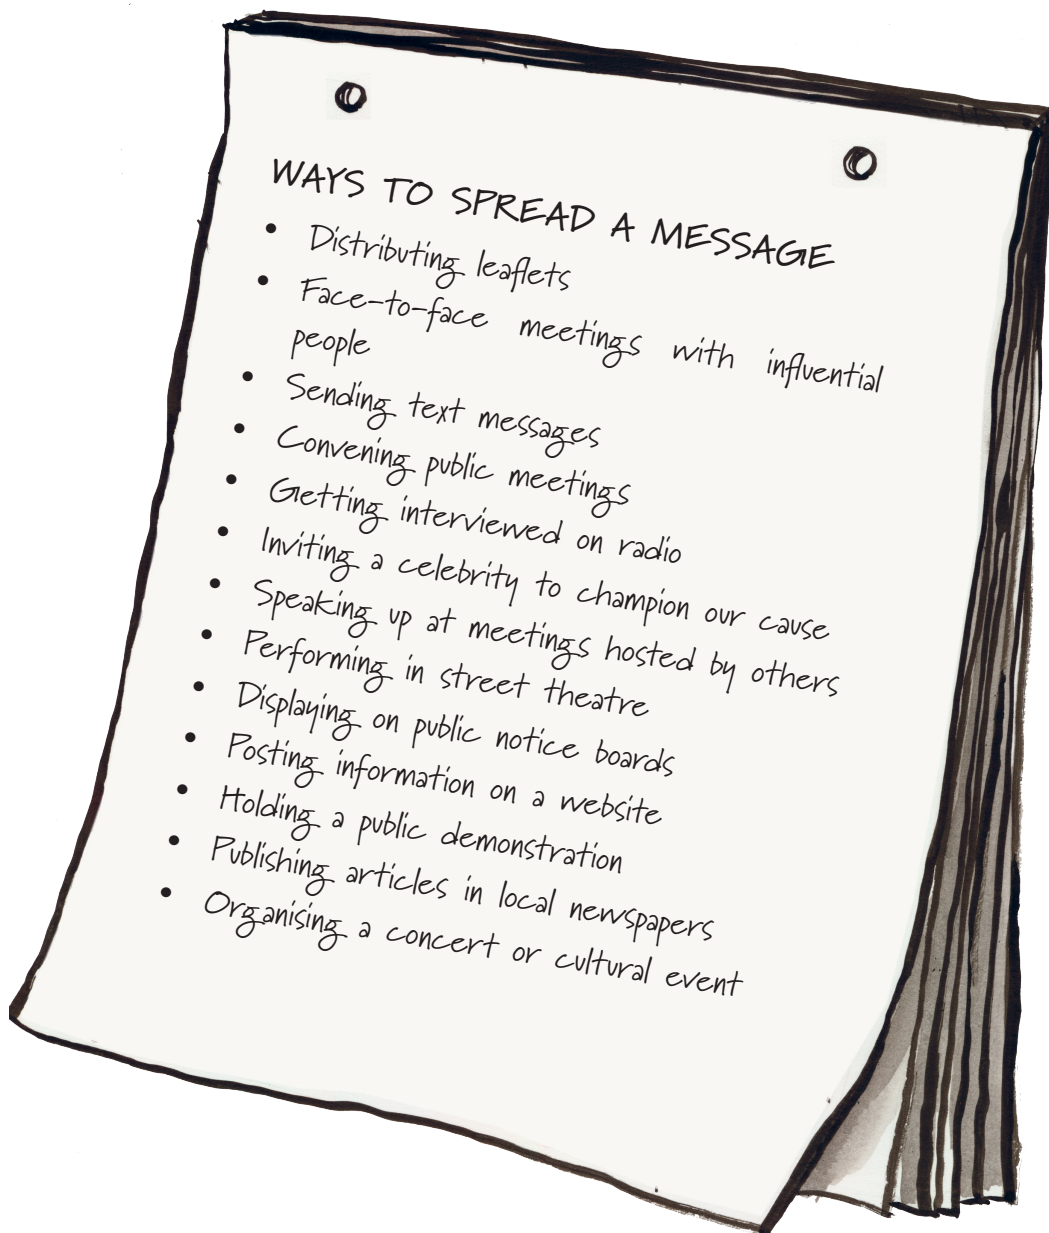 WAYS TO SPREAD A MESSAGE
• Distributing leaflets
• Face-to-face meetings with influential
people
• Sending text messages
• Convening public meetings
• Getting interviewed on radio
• Inviting a celebrity to champion our cause
• Speaking up at meetings hosted by others
• Performing in street theatre
• Displaying on public notice boards
• Posting information on a website
• Holding a public demonstration
• Publishing articles in local newspapers
• Organising a concert or cultural event